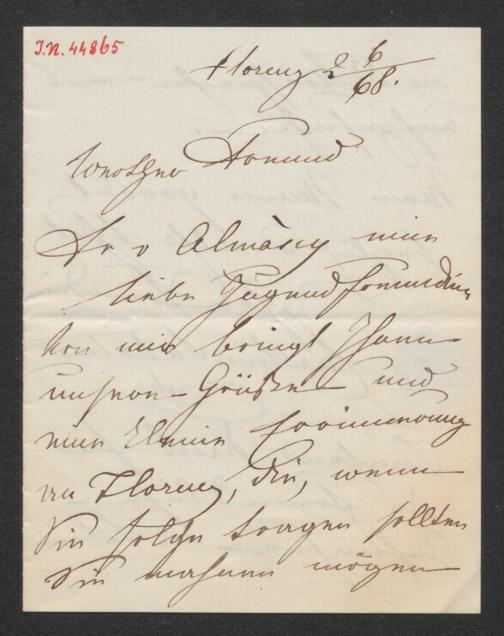 I.N. 44865
Florenz 2 6/68.
Verehrter Freund
Fr v Almásy eine
liebe Jugendfreundin
von mir bringt Ihnen
unsere Grüße und
eine kleine Erinnerung
an Florenz, die, wenn
Sie solche tragen sollten
Sie mögen